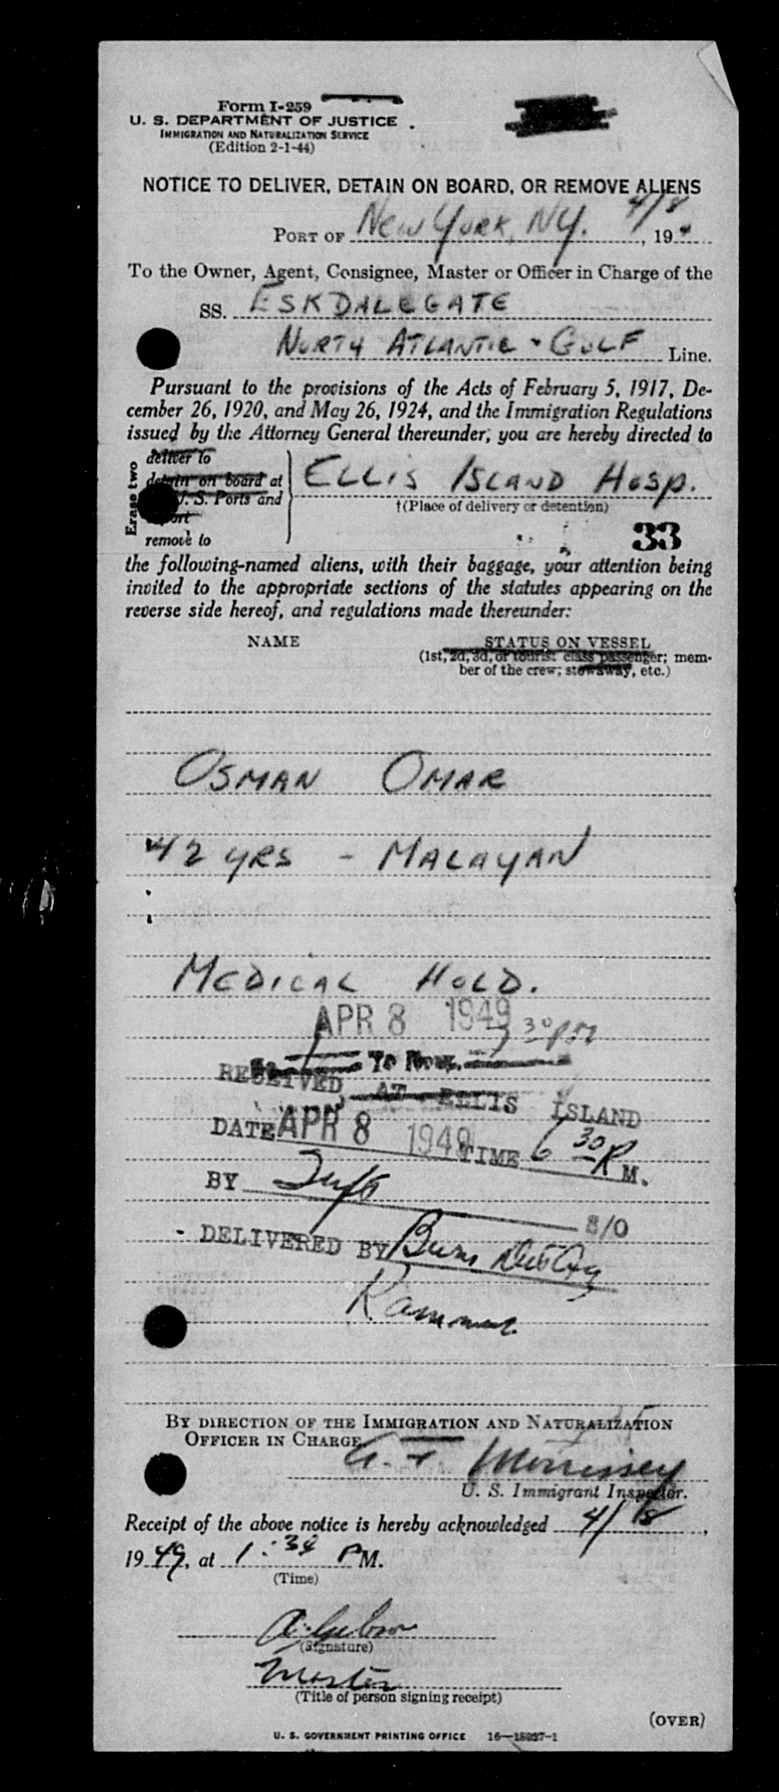 Form I-259
U. S. DEPARTMENT OF JUSTICE
IMMIGRATION AND NATURALIZATION SERVICE
(Edition 2-1-44)
NOTICE TO DELIVER, DETAIN ON BOARD, OR REMOVE ALIENS
4/8
PORT OF New York, NY. , 19
To the Owner, Agent, Consignee, Master or Officer in Charge of the
SS. ESKDALEGATE
NORTH ATLANTIC & GULF Line.
Pursuant to the provisions of the Acts of February 5, 1917, De-
cember 26, 1920, and May 26, 1924, and the Immigration Regulations
issued by the Attorney General thereunder, you are hereby directed to
Erase two
deliver to
detain on board at
U. S. Ports and
remove to
ELLIS ISLAND HOSP.
†(Place of delivery or detention)
33
the following-named aliens, with their baggage, your attention being
invited to the appropriate sections of the statutes appearing on the
reverse side hereof, and regulations made thereunder:
NAME STATUS ON VESSEL
(1st, 2d, 3d, or tourist class passenger; mem-
ber of the crew; stowaway, etc.)
OSMAN OMAR
42 YRS - MALAYAN
MEDICAL HOLD.
APR 8 1949 30 PM
RECEIVED AT ELLIS ISLAND
DATE APR 8 1949 TIME 6 30 P M.
BY S/O
DELIVERED BY Burns Det Agy
BY DIRECTION OF THE IMMIGRATION AND NATURALIZATION
OFFICER IN CHARGE
Morrissey
U. S. Immigrant Inspector.
Receipt of the above notice is hereby acknowledged 4/8,
1949, at 1:34 P M.
(Time)
(Signature)
Master
(Title of person signing receipt)
(OVER)
U. S. GOVERNMENT PRINTING OFFICE